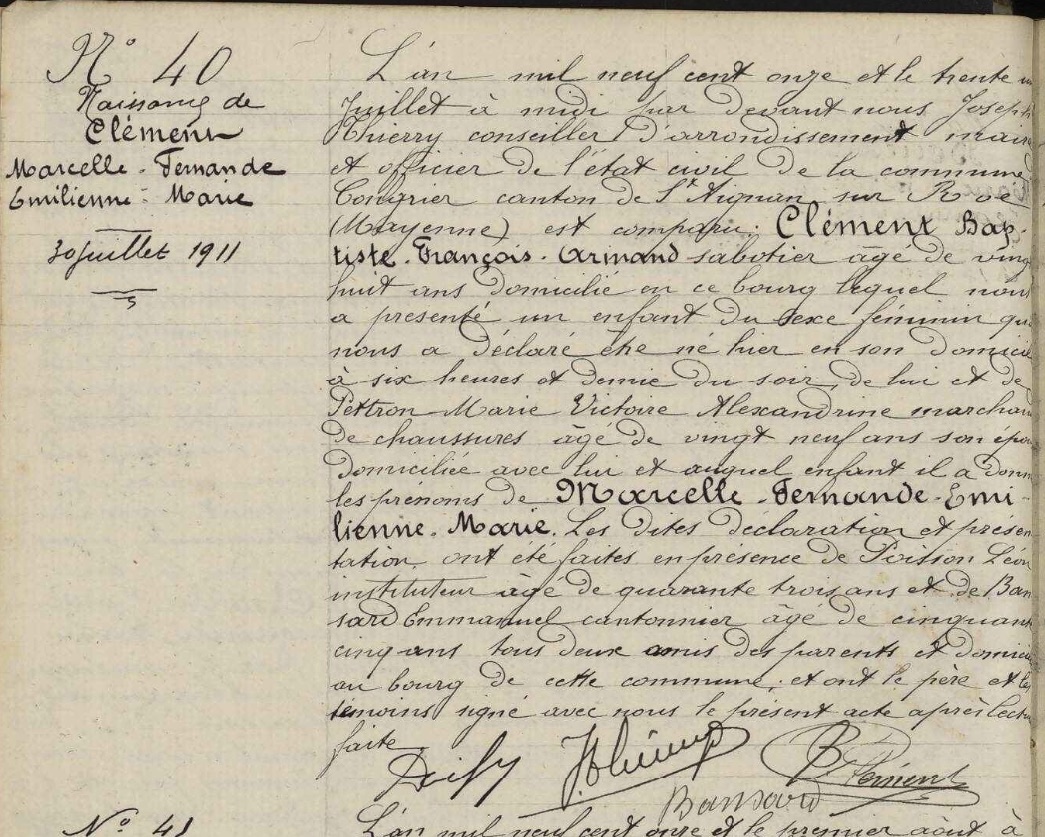 N° 40
Naissance de
Clément
Marcelle - Fernande
Emilienne - Marie
30 juillet 1911
L'an mil neuf cent onze et le trente un
Juillet à midi par devant nous Joseph
Thierry conseiller d'arrondissement maire
et officier de l'état civil de la commune
Congrier canton de St Aignan sur Roe
(Mayenne) est comparu. Clément Bap-
tiste - François - Armand sabotier âgé de ving
huit ans domicilié en ce bourg lequel nous
a présenté un enfant du sexe féminin qu
nous a déclaré être né hier en son domicil
à six heures et demie du soir, de lui et de
Marie Victoire Alexandrine marchan
de chaussures âgé de vingt neuf ans son épou
domiciliée avec lui et auquel enfant il a donn
les prénoms de Marcelle - Fernande - Emi-
lienne - Marie. Les dites déclaration et présen
tation, ont été faites en présence de Poisson Léon
instituteur âgé de quarante trois ans et de Ban
sard Emmanuel cantonnier âgé de cinquant
cinq ans tous deux amis des parents et domici
au bourg de cette commune; et ont le père et les
témoins signé avec nous le présent acte après lectu
faite.
JThierry B Clément
Bansard
N° 41
L'an mil neuf cent onze et le premier août à